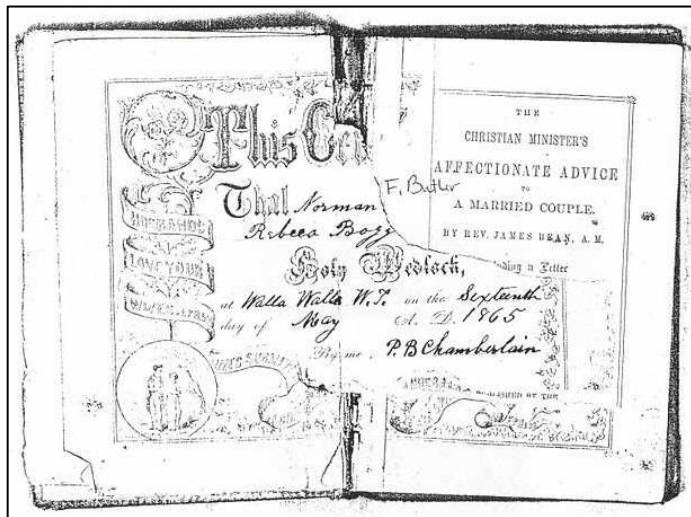 This Cer
That Norman
F. Butler
Rebecca Bogg
Holy Wedlock,
at Walla Walla W.T. on the Sixteenth
day of May A. D. 1865
By me, P. B Chamberlain
HUSBANDS
LOVE YOUR
WIVES
THE
CHRISTIAN MINISTER'S
AFFECTIONATE ADVICE
TO
A MARRIED COUPLE.
BY REV. JAMES BEAN, A. M.
Letter
PUBLISHED BY THE